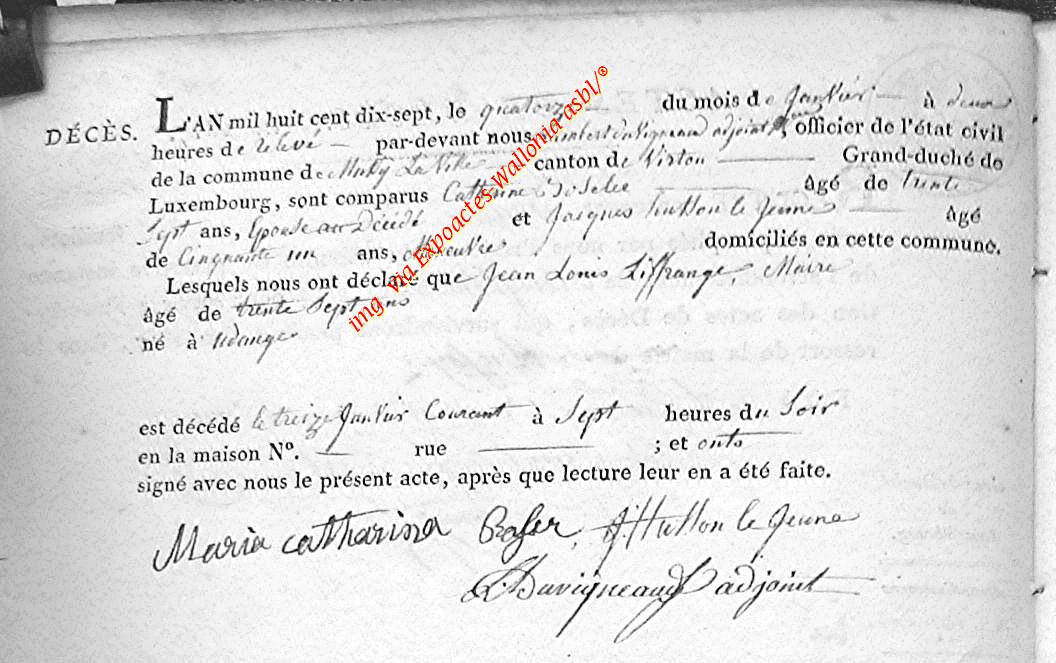 DÉCÈS. L'AN mil huit cent dix-sept, le quatorze du mois de Janvier à deux
heures de relevé par-devant nous Lambert duvigneaud adjoint officier de l'état civil
de la commune de Mussy La Ville canton de Virton Grand-duché de
Luxembourg, sont comparus Catherine âgé de trente
Sept ans, Epouse au Décédé et Jacques hutton le Jeune âgé
de Cinquante ans, domiciliés en cette commune.
Lesquels nous ont déclaré que Jean Louis Liffrange, Maire
âgé de trente Sept ans
né à Udange
est décédé le treize Janvier Courant à Sept heures du Soir
en la maison N°. rue ; et onts
signé avec nous le présent acte, après que lecture leur en a été faite.
Maria catharina J Hutton le Jeune
L. Duvigneaud adjoint
img via Expoactes Wallonia asbl/®